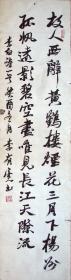 故人西辭黃鶴樓煙花三月下揚州
孤帆遠影碧空盡唯見長江天際流
李白詩一首癸酉月李書